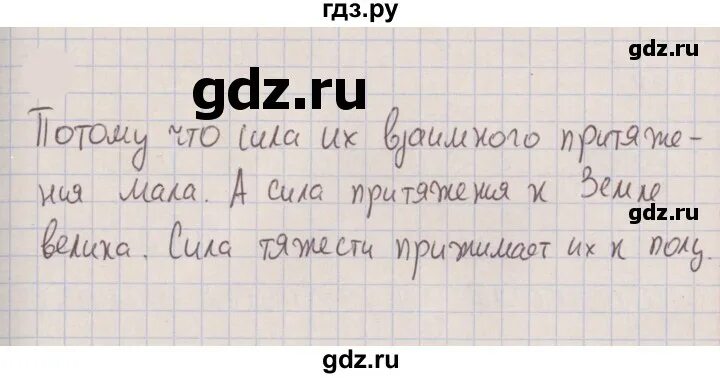 гдз.ру
gdz.ru
gdz.ru
Потому что сила их взаимного притяже-
ния мала. А сила притяжения к Земле
gdz.ru
велика. Сила тяжести прижимает их к полу.
gdz.ru